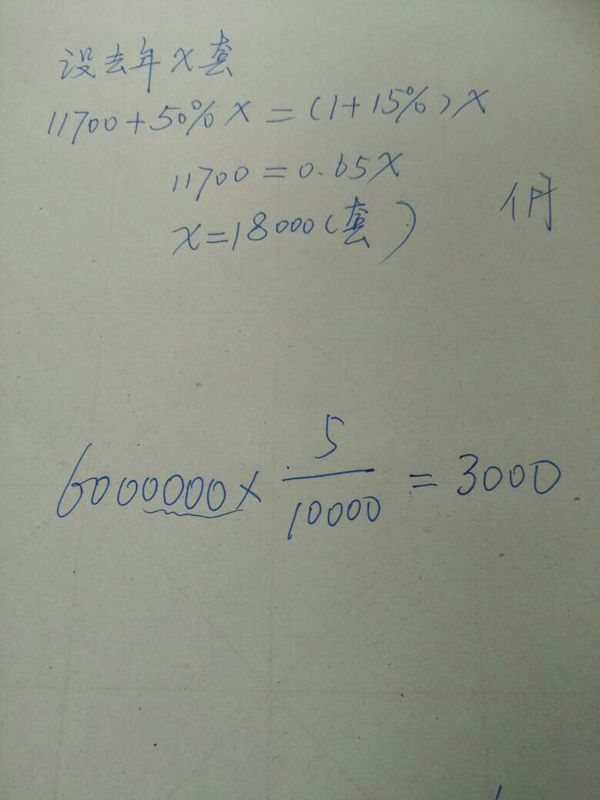 设去年x套
11700+50%x=(1+15%)x
11700=0.65x
x=18000(套)
6000000×5/10000=3000